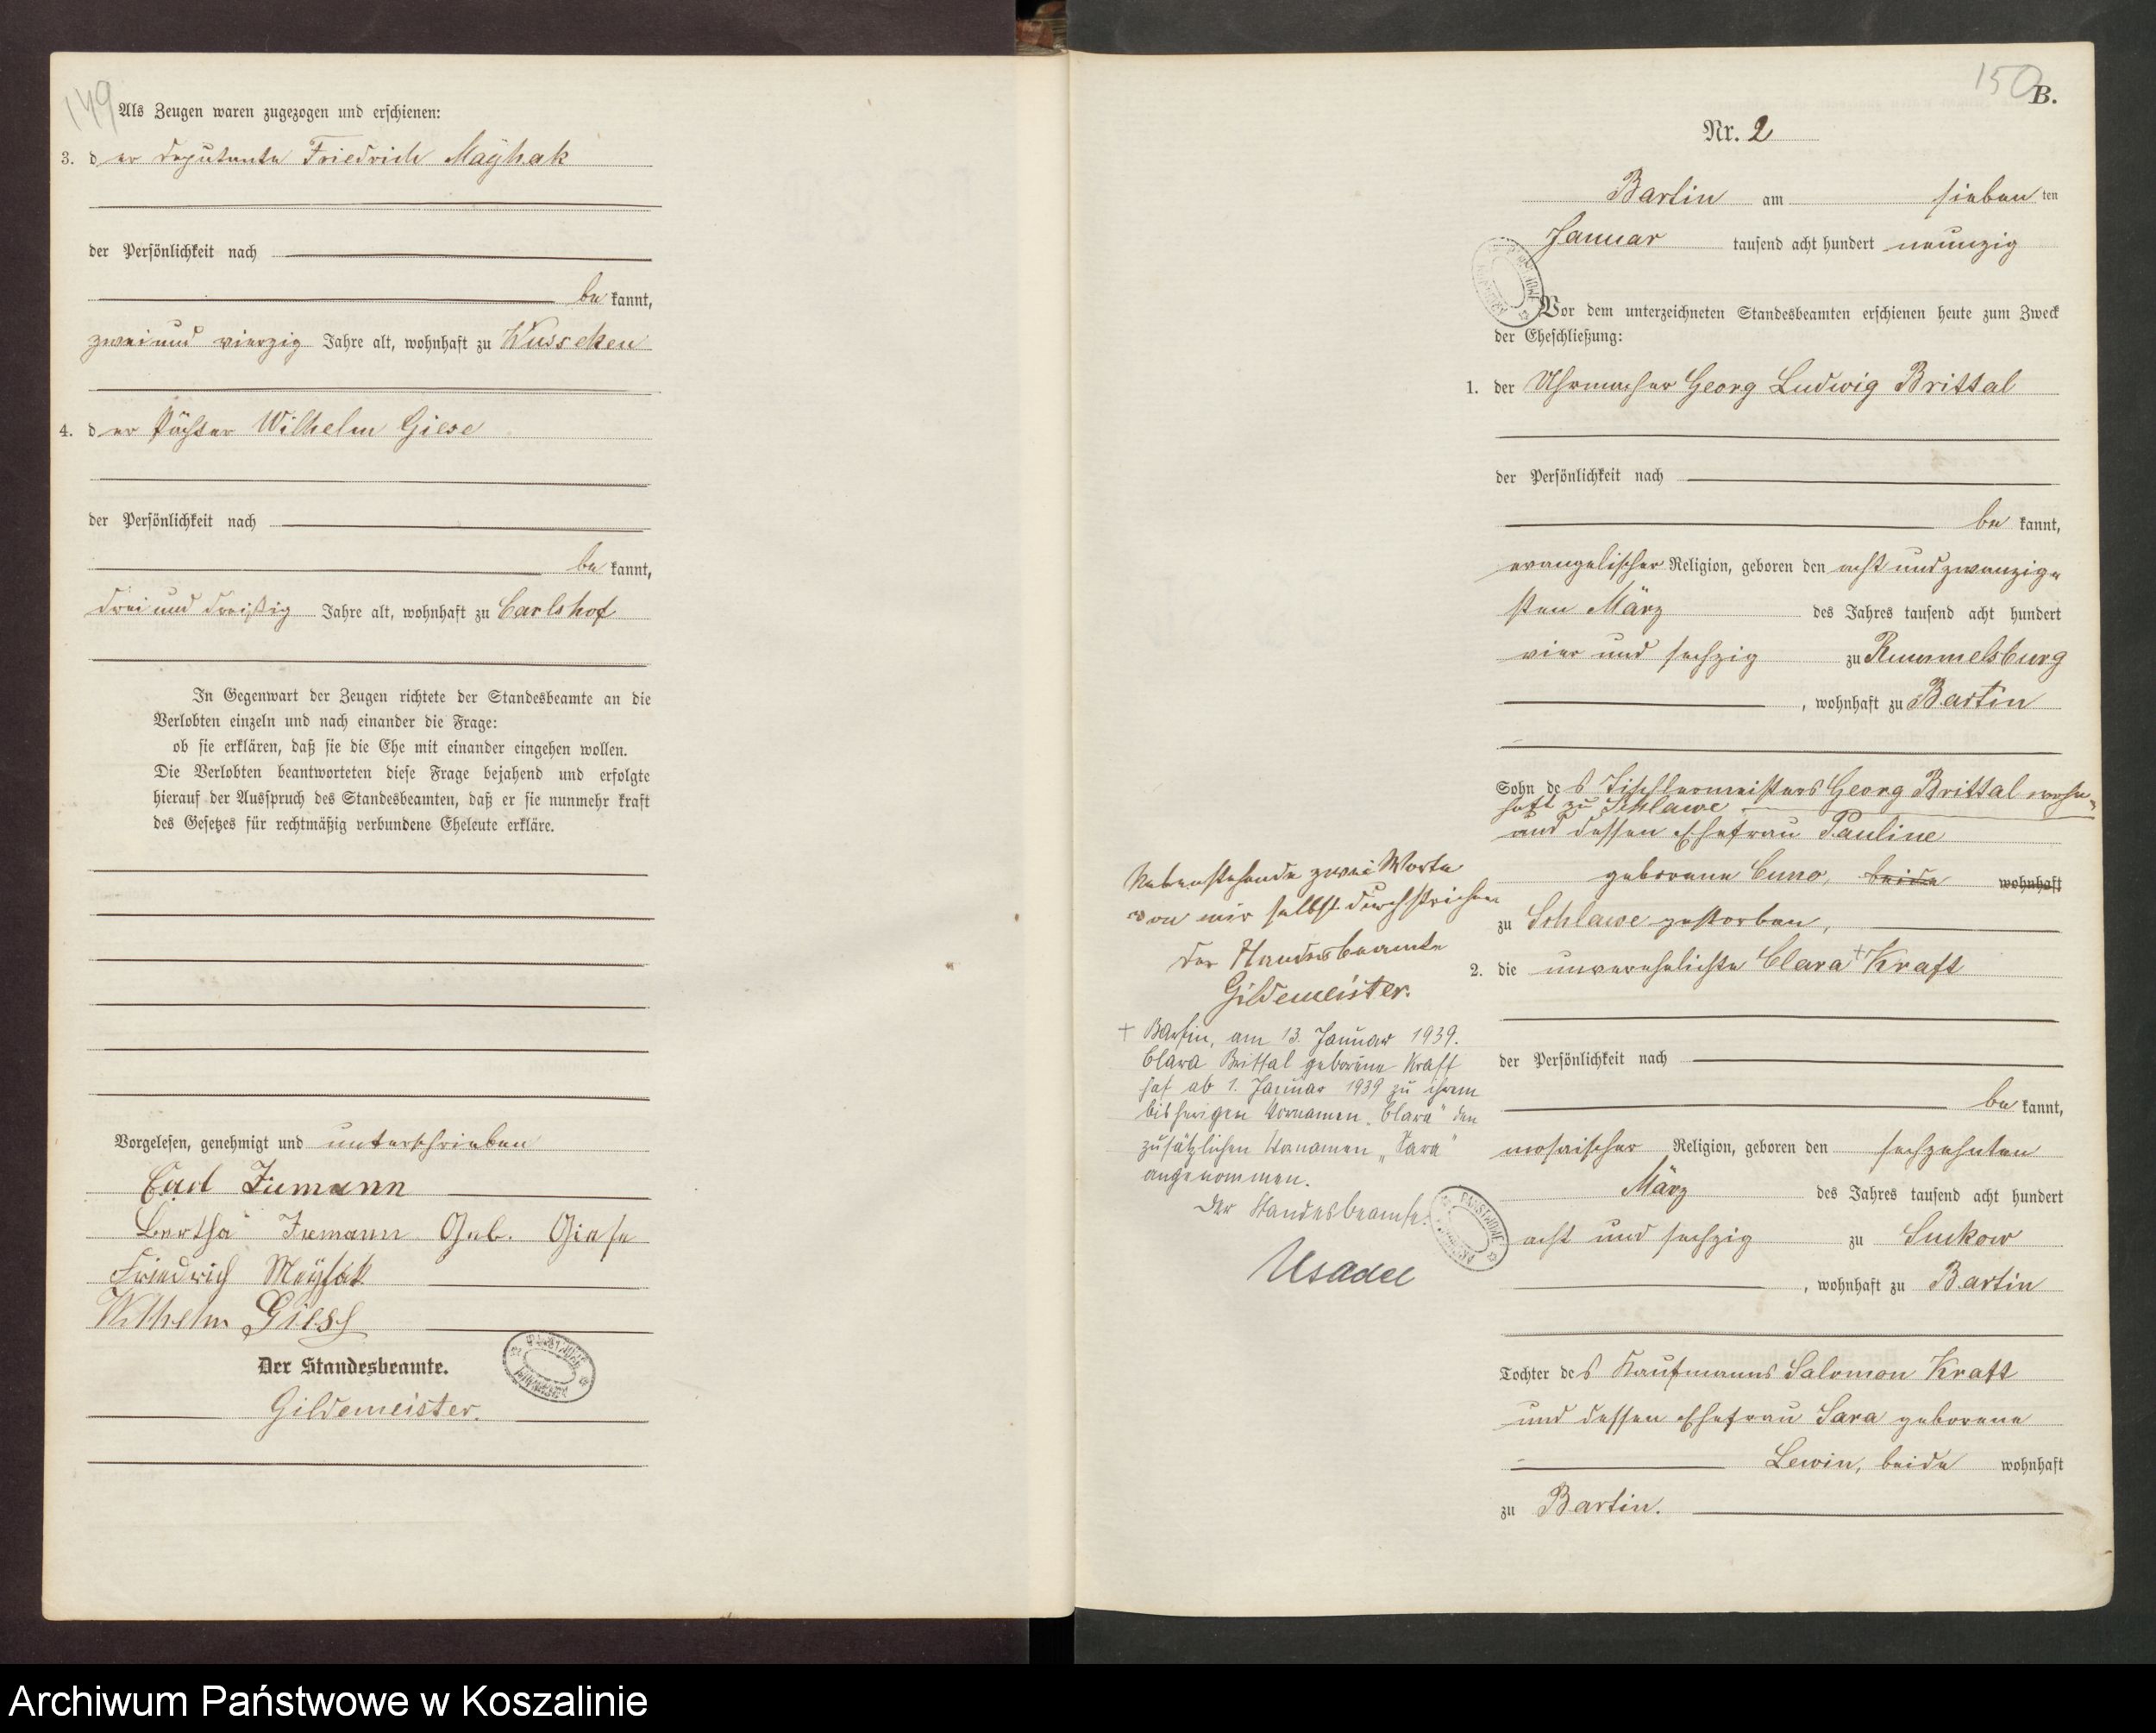 149
Als Zeugen waren zugezogen und erschienen:
3. der Deputante Friedrich Mayhak
der Persönlichkeit nach
bekannt,
zwei und vierzig Jahre alt, wohnhaft zu Kusseken
4. der Pächter Wilhelm Giese
der Persönlichkeit nach
bekannt,
drei und dreißig Jahre alt, wohnhaft zu Carlshof
In Gegenwart der Zeugen richtete der Standesbeamte an die
Verlobten einzeln und nach einander die Frage:
ob sie erklären, daß sie die Ehe mit einander eingehen wollen.
Die Verlobten beantworteten diese Frage bejahend und erfolgte
hierauf der Ausspruch des Standesbeamten, daß er sie nunmehr kraft
des Gesetzes für rechtmäßig verbundene Eheleute erkläre.
Vorgelesen, genehmigt und unterschrieben
Carl
Bertha Geb. Giese
Friedrich Mayhak
Wilhelm Giese
Der Standesbeamte.
Gildemeister.
150
B.
Nr. 2
Bartin am siebenten
Januar tausend acht hundert neunzig
Vor dem unterzeichneten Standesbeamten erschienen heute zum Zweck
der Eheschließung:
1. der Uhrmacher Georg Ludwig Brittal
der Persönlichkeit nach
bekannt,
evangelischer Religion, geboren den acht und zwanzig-
sten März des Jahres tausend acht hundert
vier und sechzig zu Rummelsburg
, wohnhaft zu Bartin
Sohn des Tischlermeisters Georg Brittal wohn-
haft zu Schlawe
und dessen Ehefrau Pauline
geborene Cuno, beide wohnhaft
zu Schlawe gestorben,
2. die unverehelichte Clara + Kraft
der Persönlichkeit nach
bekannt,
mosaischer Religion, geboren den sechzehnten
März des Jahres tausend acht hundert
acht und sechzig zu Suckow
, wohnhaft zu Bartin
Tochter des Kaufmanns Salomon Kraft
und dessen Ehefrau Sara geborene
Lewin, beide wohnhaft
zu Bartin.
Nebenstehende zwei Worte
von mir selbst durchstrichen
der Standesbeamte
Gildemeister.
+ Bartin, am 13. Januar 1939.
Clara Brittal geborene Kraft
hat ab 1. Januar 1939 zu ihrem
bisherigen Vornamen „Clara" den
zusätzlichen Vornamen „Sara"
angenommen.
Der Standesbeamte:
Usadel
Archiwum Państwowe w Koszalinie